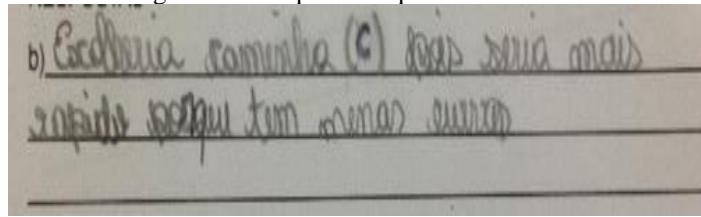 b) Escolheria caminho (C) pois seria mais
rapido porque tem menas curvas